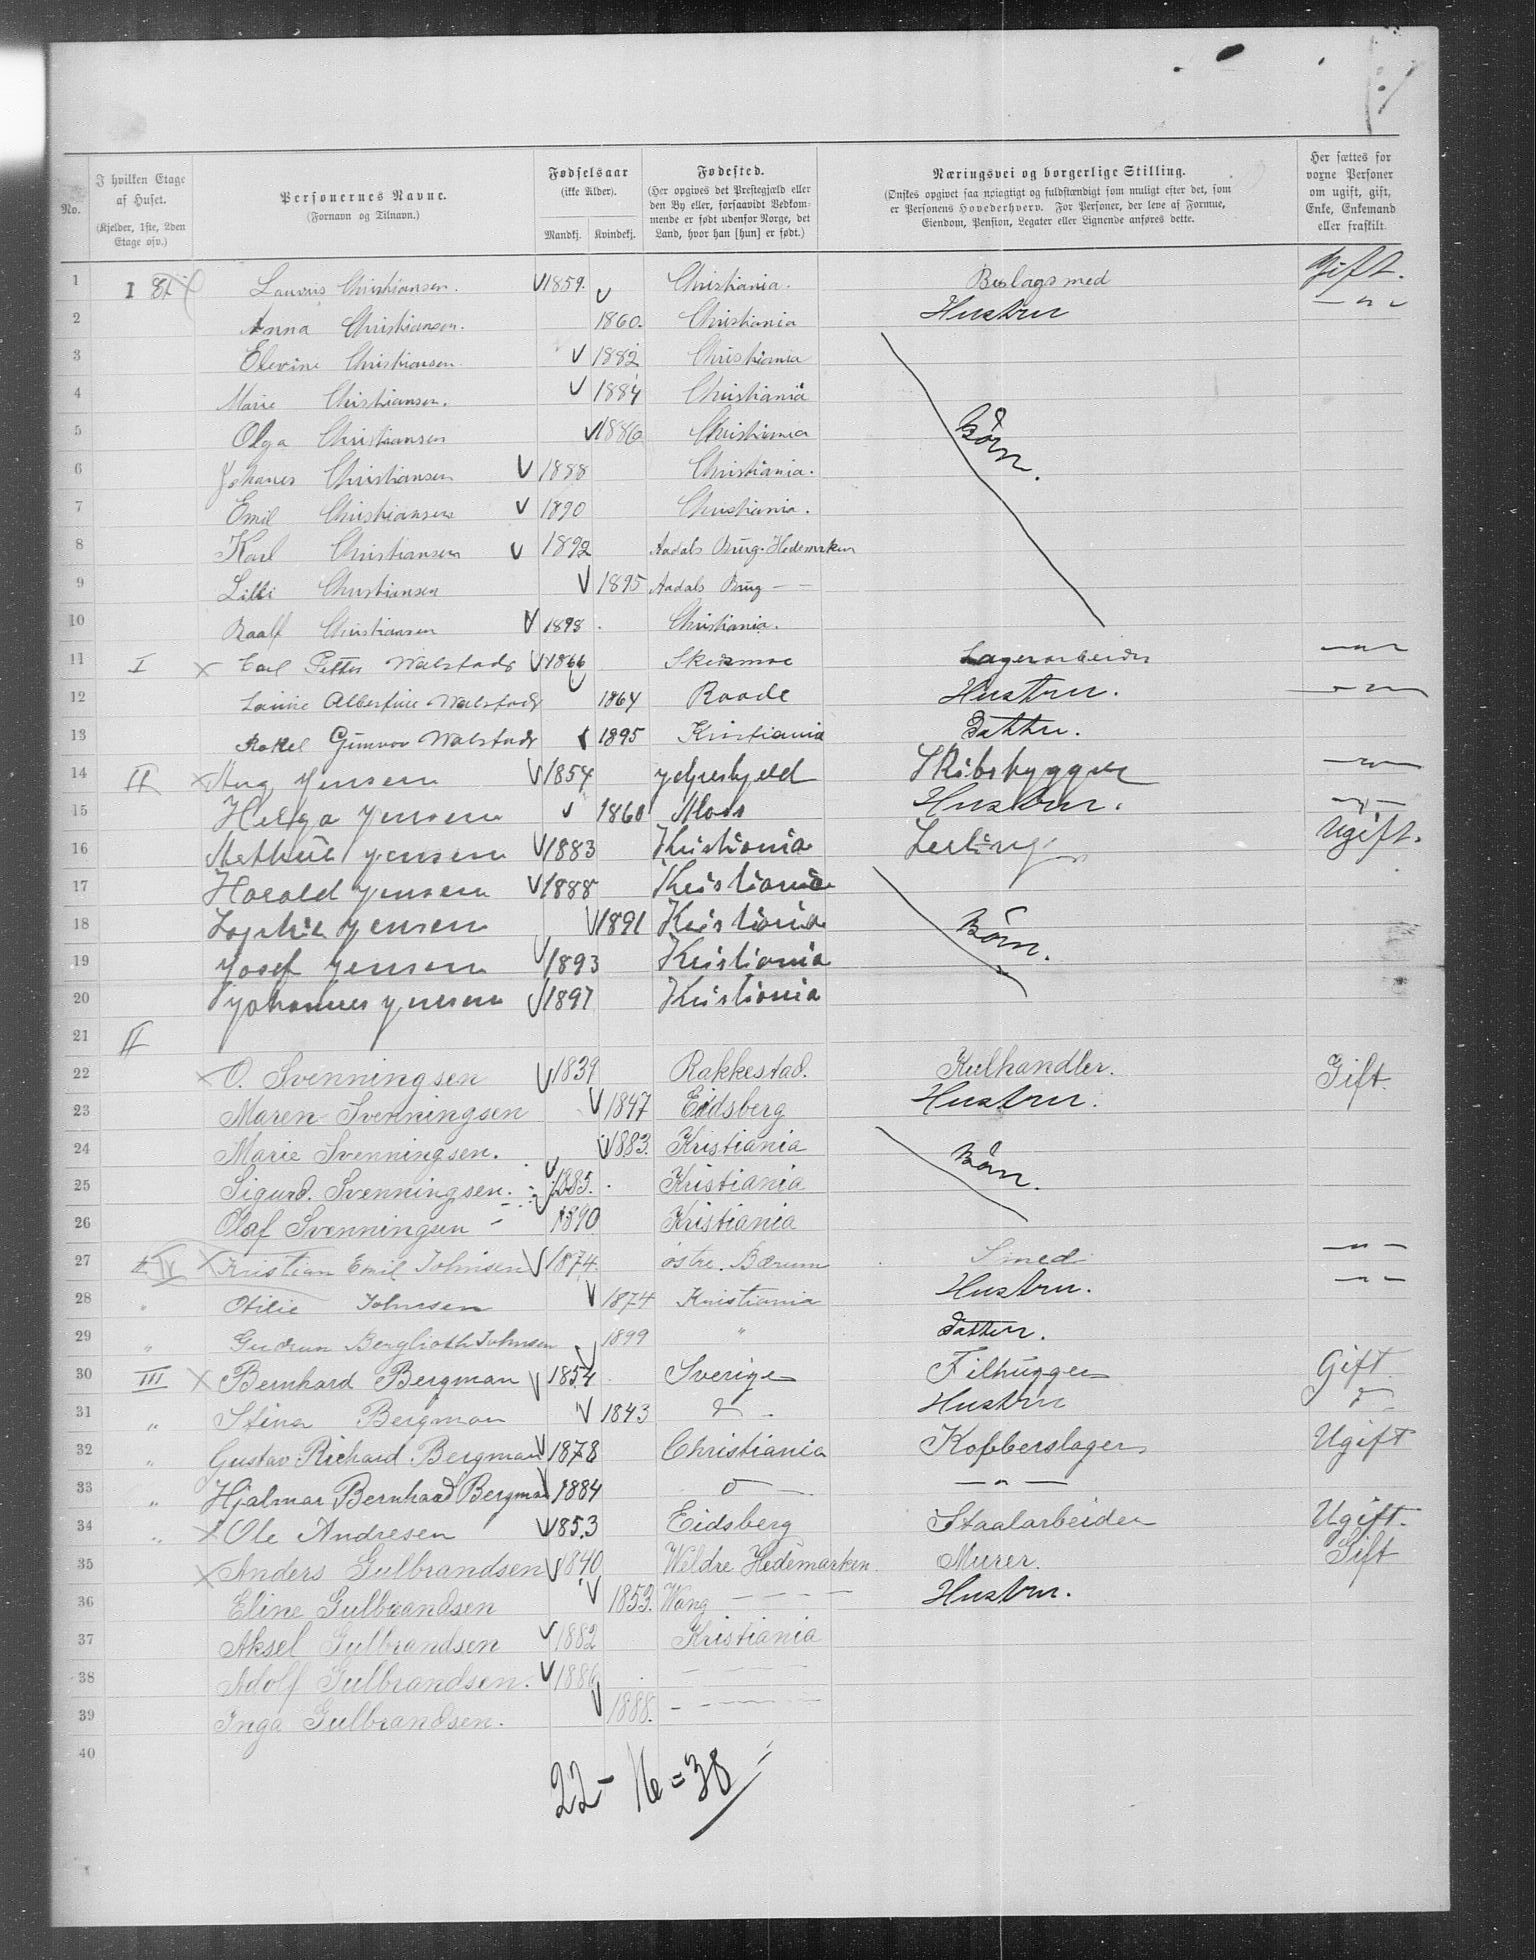 No.
I hvilken Etage af Huset. (Kjelder, 1ste, 2den Etage osv.)
Personernes Navne. (Fornavn og Tilnavn.)
Fødselsaar (ikke Alder). Mandkj. Kvindekj.
Fødested. (Her opgives det Prestegjæld eller den By eller, forsaavidt Vedkommende er født udenfor Norge, det Land, hvor han [hun] er født.)
Næringsvei og borgerlige Stilling. (Ønskes opgivet saa nøiagtigt og fuldstændigt som muligt efter det, som er Personens Hovederhverv. For Personer, der leve af Formue, Eiendom, Pension, Legater eller Lignende anføres dette.
Her sættes for voxne Personer om ugift, gift, Enke, Enkemand eller fraskilt.
1 I Et Laurits Christiansen. 1859. Christiania. Beslagsmed Gift.
2 Anna Christiansen. 1860. Christiania Hustru — " —
3 Elevine Christiansen. 1882 Christiania
4 Marie Christiansen. 1884 Christiania
5 Olga Christiansen 1886 Christiania Börn.
6 Johanes Christiansen 1888 Christiania.
7 Emil Christiansen 1890 Christiania.
8 Karl Christiansen 1892 Aadals Brug. Hedemarken
9 Lilli Christiansen 1895 Aadals Brug — —
10 Raalf Christiansen 1898. Christiania.
11 I Carl Petter Walstads 1866 Skedsmoe Lagerarbeider — " —
12 Albertine Walstads 1864 Raade Hustru. — " —
13 Rakel Gunvor Walstads 1895 Kristiania Datter.
14 II Aug Jensen 1854 Skibsbygger — " —
15 Helga Jensen 1860 Moss Hustru. — " —
16 Jensen 1883 Kristiania Lerling Ugift.
17 Harald Jensen 1888 Kristiania
18 Sophie Jensen 1891 Kristiania Börn.
19 Josef Jensen 1893 Kristiania
20 Johannes Jensen 1897 Kristiania
21 II
22 O. Svenningsen 1839 Rakkestad. Kulhandler. Gift.
23 Maren Svenningsen 1847 Eidsberg Hustru.
24 Marie Svenningsen. 1883. Kristiania
25 Sigurd. Svenningsen. 1885. Kristiania Börn.
26 Olaf Svenningsen 1890 Kristiania
27 IV Kristian Emil Johnsen 1874. østre. Bærum Smed — " —
28 " Otilie Johnsen 1874 Kristiania Hustru. — " —
29 " Gudrun Berglioth Johnsen 1899 " Datter.
30 III Bernhard Bergman 1854 Sverige Filhugger Gift
31 " Stina Bergman 1843 Hustru
32 " Gustav Richard Bergman 1878 Christiania Kobberslager Ugift
33 " Hjalmar Bernhard Bergman 1884 — " —
34 " Ole Andresen 1853 Eidsberg Staalarbeider Ugift.
35 Anders Gulbrandsen 1840 Veldre Hedemarken. Murer. Gift
36 Eline Gulbrandsen 1853. Vang — — — Hustru.
37 Aksel Gulbrandsen 1882 Kristiania
38 Adolf Gulbrandsen. 1886 — — — —
39 Inga Gulbrandsen. 1888. — — — —
40
22 - 16 = 38